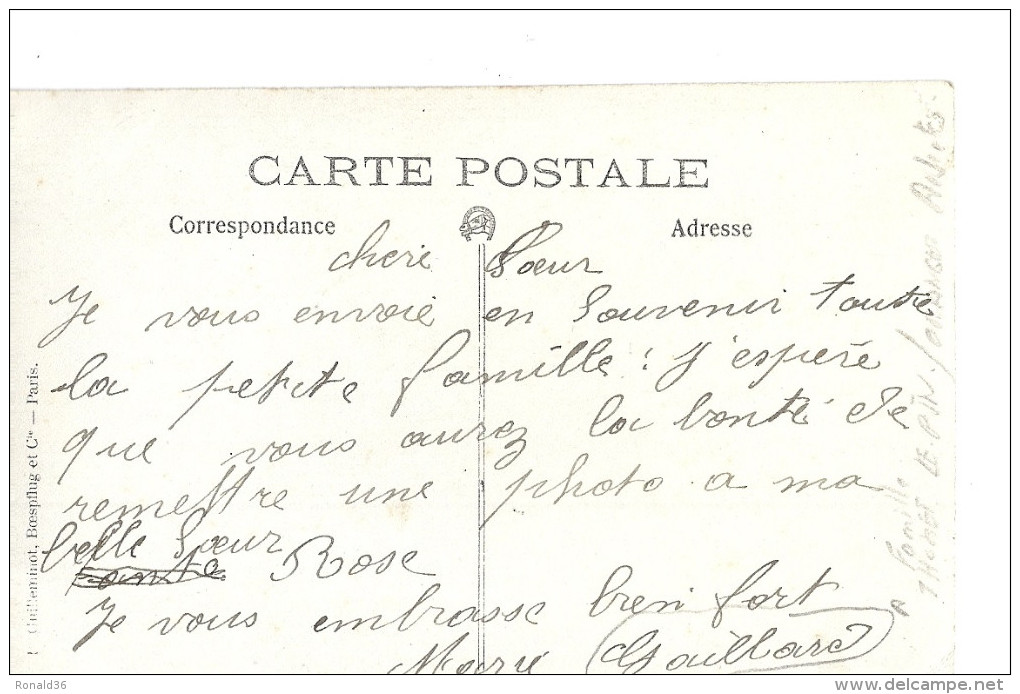 CARTE POSTALE
Correspondance
Adresse
cheri Sœur
Je vous envoie en Souvenir toute
la petite famille : j'espère
que vous aurez la bonté de
remettre une photo a ma
belle Sœur
tante Rose
Je vous embrasse bien fort
Marie Gaillard
Guilleminot, Bœspflug et Cie — Paris.
Famille
LE PIN
delcampe.net
Ronald36